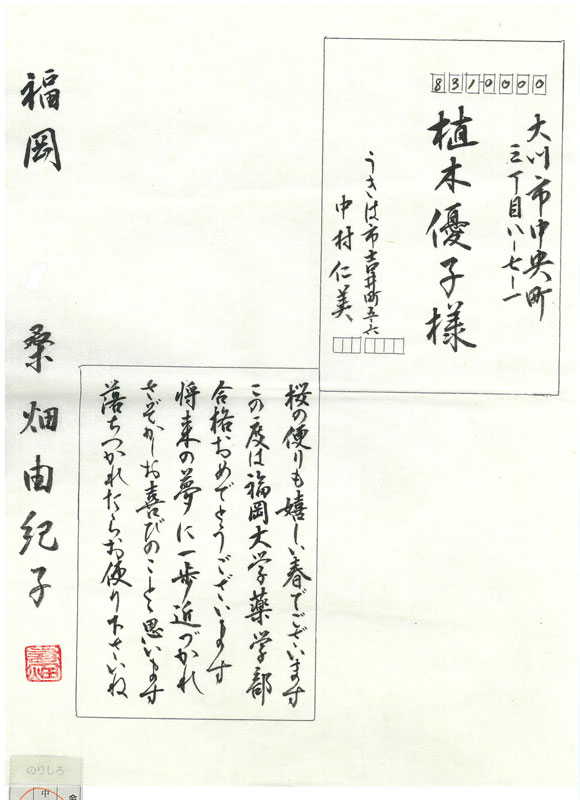 8310000
大川市中央町
三丁目八ー七ー一
植木優子様
うきは市吉井町五ー六
中村仁美
桜の便りも嬉しい春でございます
この度は福岡大学薬学部
合格おめでとうございます
将来の夢に一歩近づかれ
さぞかしお喜びのことと思います
落ちつかれたらお便り下さいね
福岡 桑畑由紀子
のりしろ
中